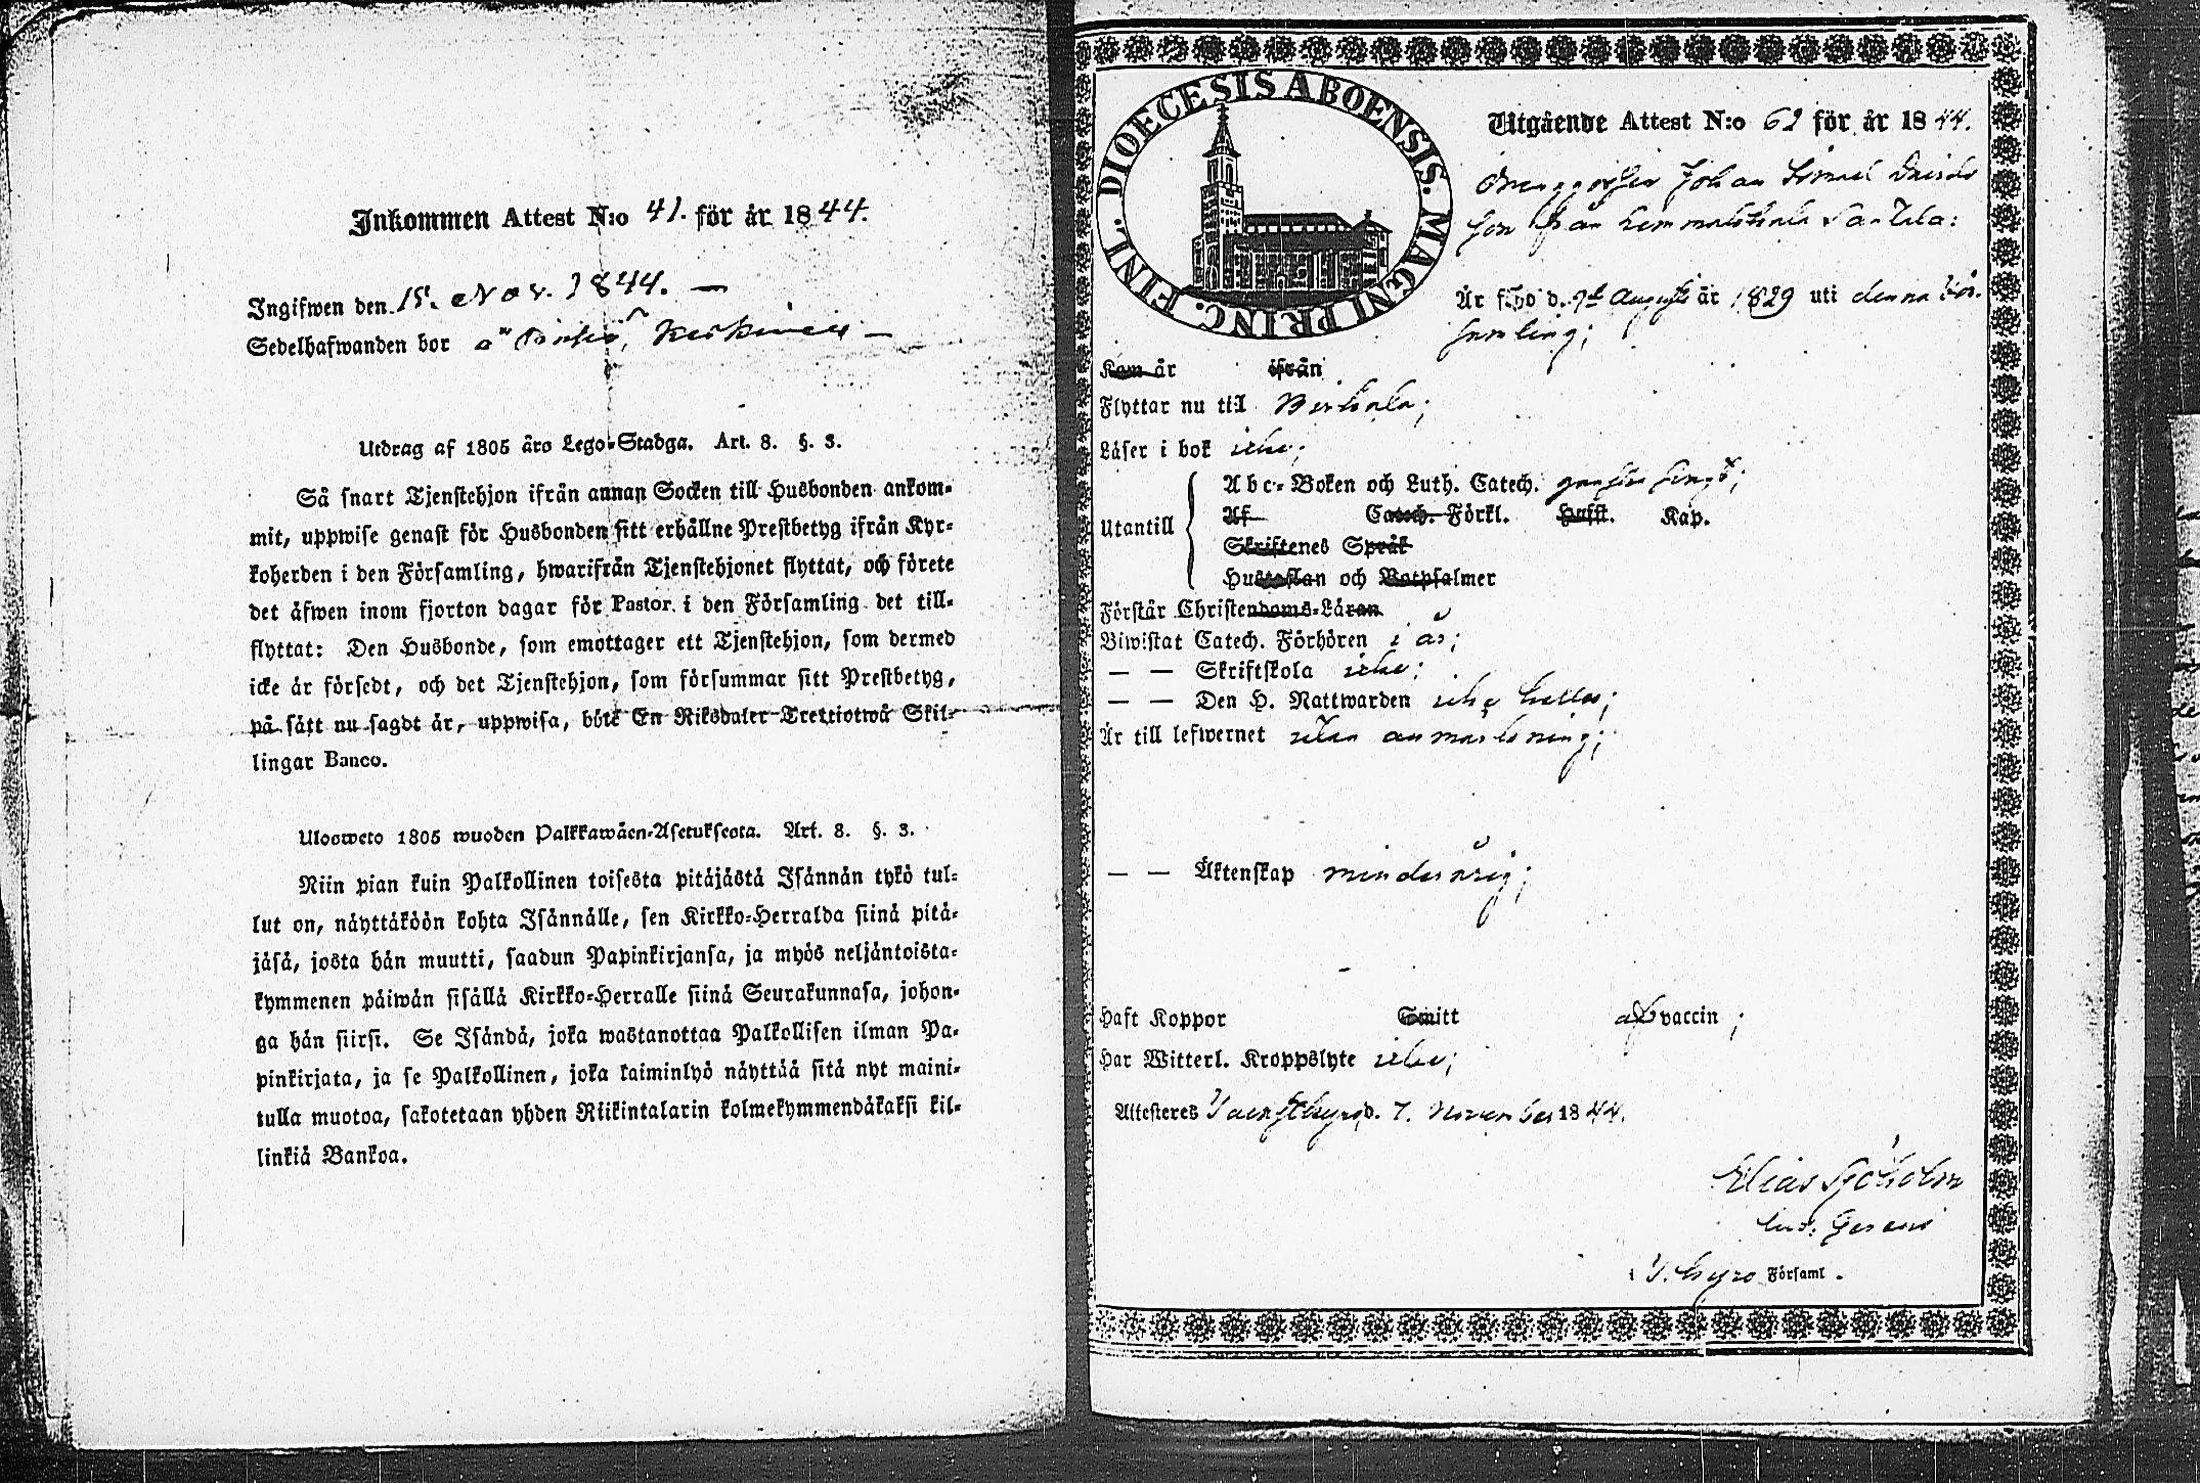 Inkommen Attest N:o 41. för år 1844.
Ingifwen den 15. Nov. 1844. —
Sedelhafwanden bor å
Utdrag af 1805 års Lego-Stadga. Art. 8. §. 3.
Så snart Tjenstehjon ifrån annan Socken till Husbonden ankom-
mit, uppwise genast för Husbonden sitt erhållne Prestbetyg ifrån Kyr-
koherden i den Församling, hwarifrån Tjenstehjonet flyttat, och förete
det äfwen inom fjorton dagar för Pastor i den Församling det till-
flyttat: Den Husbonde, som emottager ett Tjenstehjon, som dermed
icke är försedt, och det Tjenstehjon, som försummar sitt Prestbetyg,
på sätt nu sagdt är, uppwisa, böte En Riksdaler Trettiotwå Skil-
lingar Banco.
Ulosweto 1805 wuoden Palkkawäen-Asetuksesta. Art. 8. §. 3.
Niin pian kuin Palkollinen toisesta pitäjästä Isännän tykö tul-
lut on, näyttäköön kohta Isännälle, sen Kirkko-Herralda siinä pitä-
jäsä, josta hän muutti, saadun Papinkirjansa, ja myös neljäntoista-
kymmenen päiwän sisällä Kirkko-Herralle siinä Seurakunnasa, johon-
ga hän siirsi. Se Isändä, joka wastanottaa Palkollisen ilman Pa-
pinkirjata, ja se Palkollinen, joka laiminlyö näyttää sitä nyt maini-
tulla muotoa, sakotetaan yhden Riikintalarin kolmekymmendäkaksi kil-
linkiä Bankoa.
DIOECESIS ABOENSIS. MAGNI PRINC. FINL.
Utgående Attest N:o 62 för år 1844.
Johan Davids
son från
Är född d. Augusti år 1829 uti denna För-
samling;
Kom år ifrån
Flyttar nu till Birkala;
Läser i bok icke;
Utantill
Abc-Boken och Luth. Catech.
Af Catech. Förkl. Hufst. Kap.
Skriftenes Språk
Hustaflan och Botpsalmer
Förstår Christendoms-Läran
Biwistat Catech. Förhören i år;
— — Skriftskola icke;
— — Den H. Nattwarden icke heller;
Är till lefwernet utan anmärkning;
— — Äktenskap minderårig;
Haft Koppor Smitt af vaccin;
Har Witterl. Kroppslyte icke;
Attesteres d. 7. November 1844.
Elias Sjöholm
i Församl.